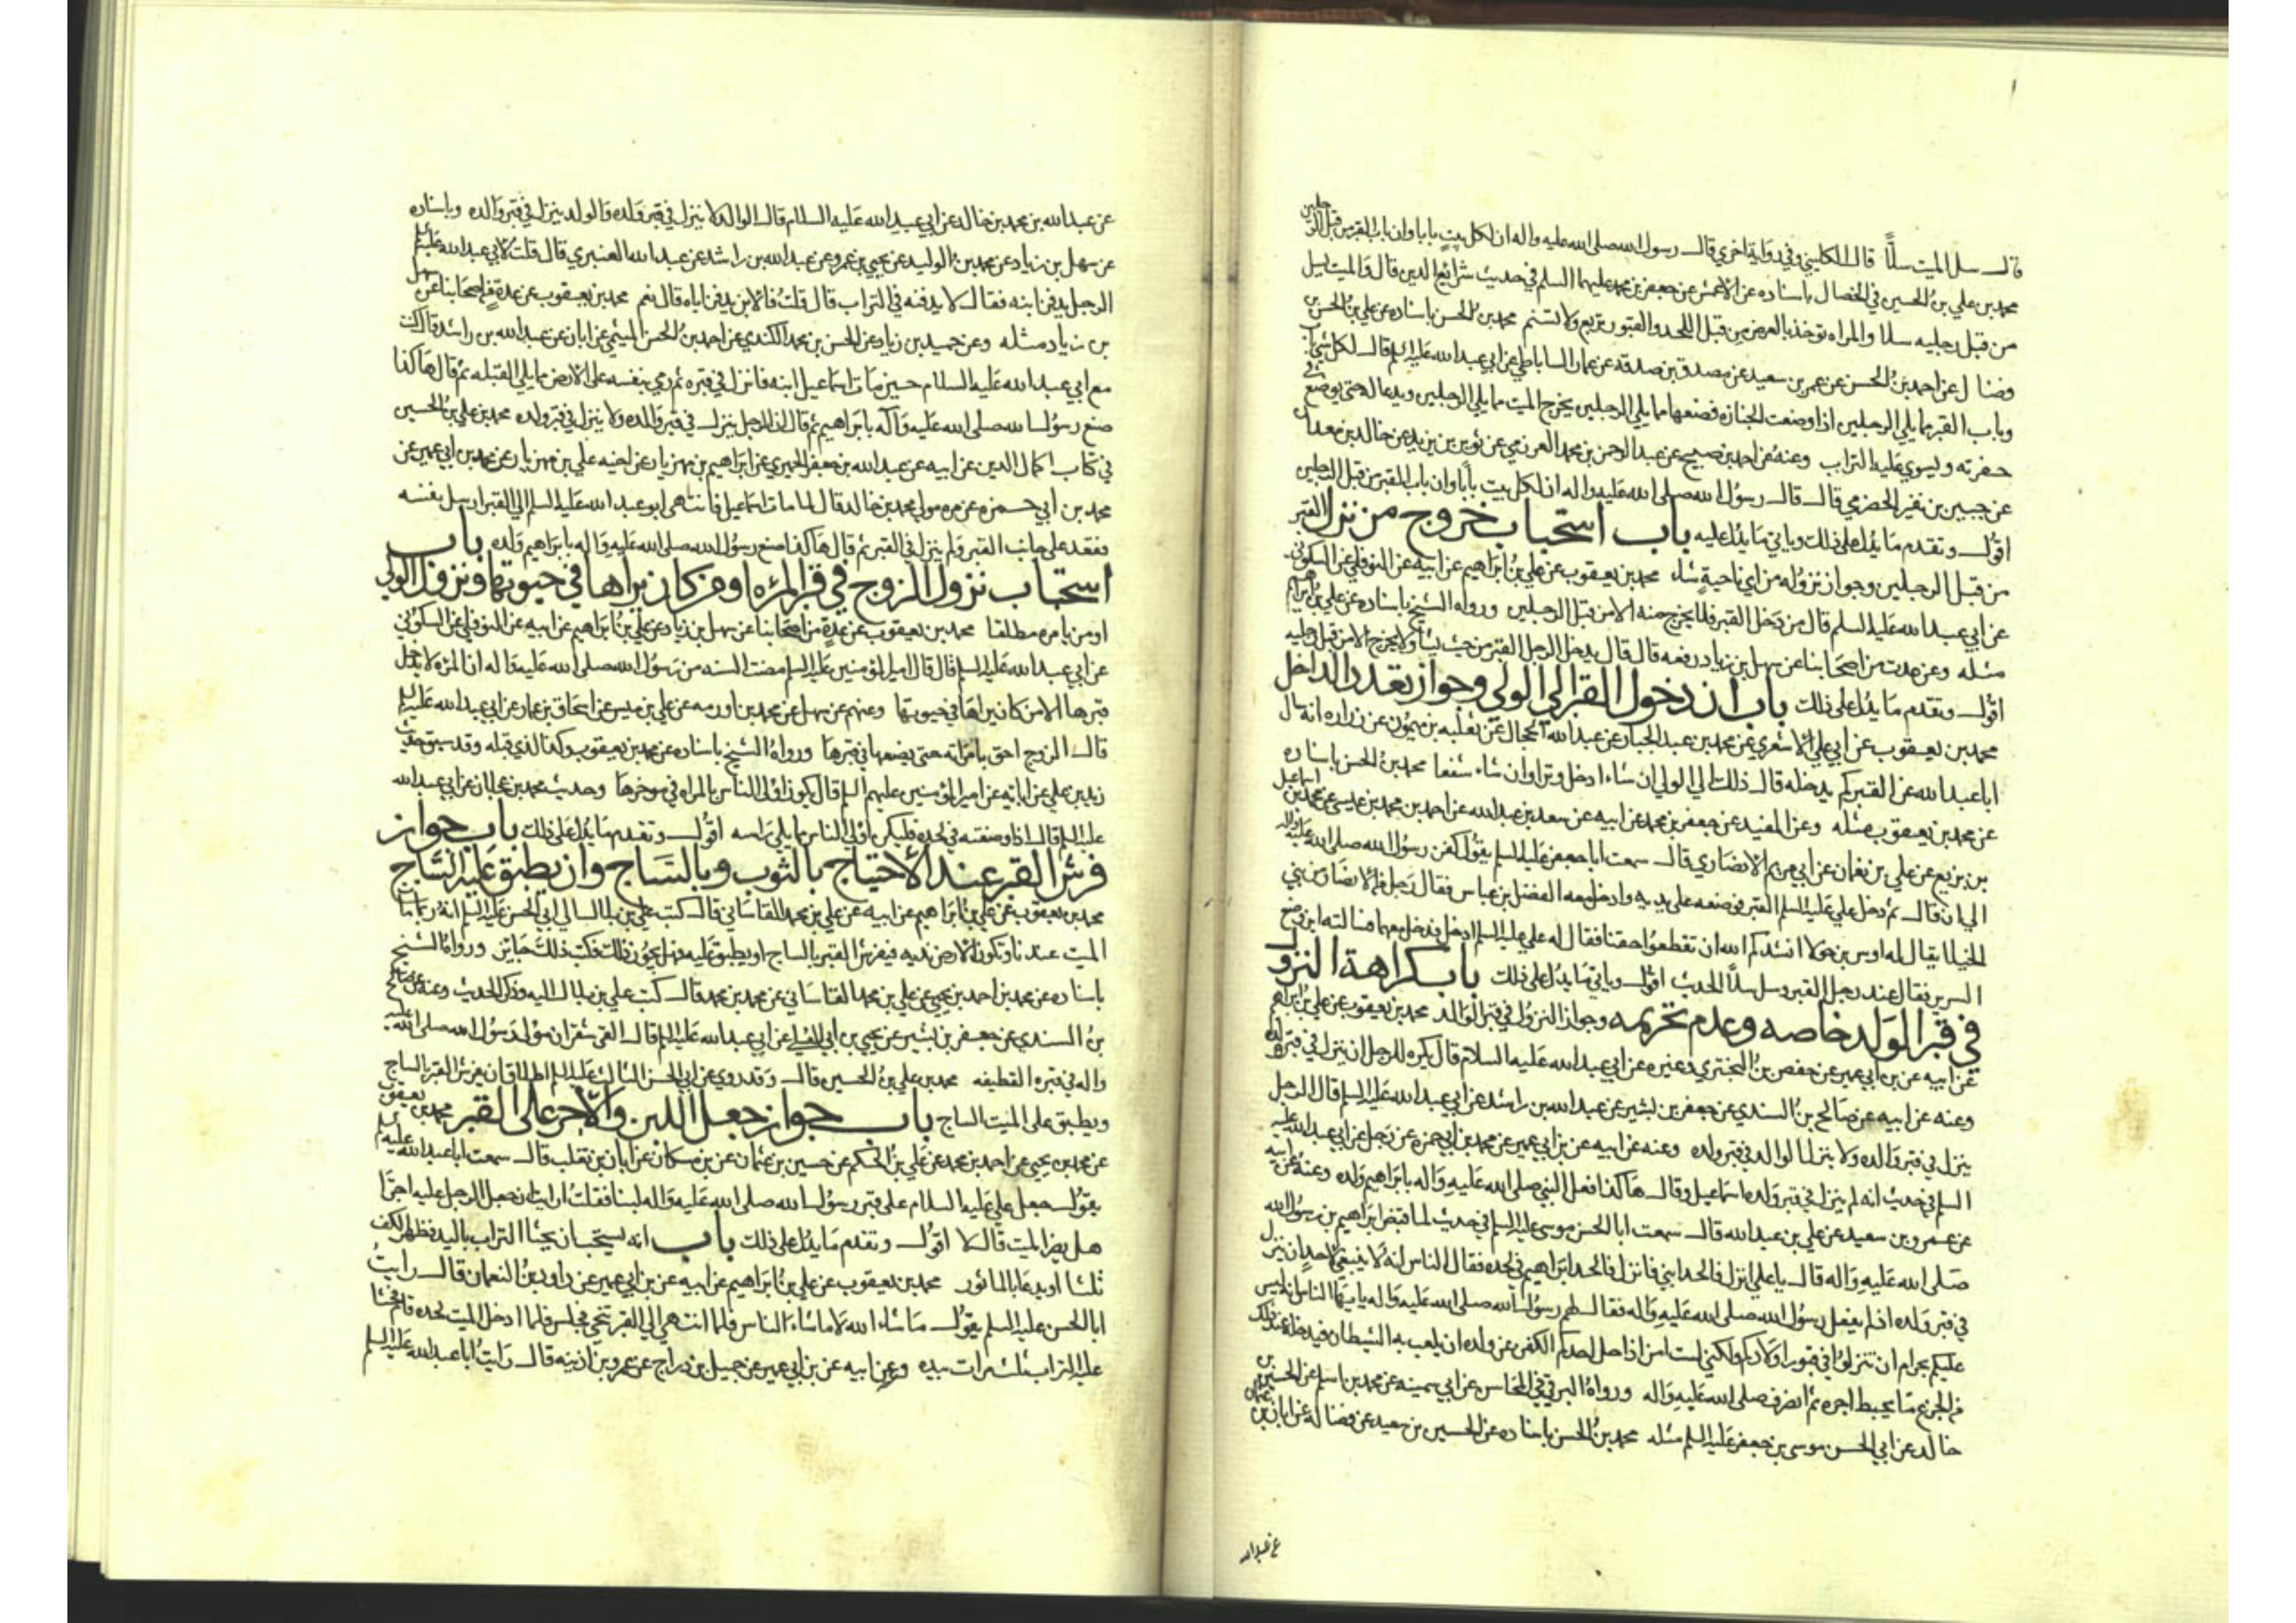 قال سل الميت سلاً قال الكليني وفي رواية اخري قال رسول الله صلى الله عليه واله ان لكل بيت بابا وان باب القبر من قبل الرجلين
محمد بن علي بن الحسين في الخصال باسناده عن الاعمش عن جعفر بن محمد عليهما السلم في حديث شرايع الدين قال والميت يسل
من قبل رجليه سلا والمراه توخذ بالعرض من قبل اللحد والقبور تربع ولا تسنم محمد بن الحسن باسناده عن علي بن الحسن بن
فضال عن احمد بن الحسن عن عمر بن سعيد عن مصدق بن صدقه عن عمار الساباطي عن ابي عبد الله عليه السلم قال لكل شي باب
وباب القبر مما يلي الرجلين اذا وضعت الجنازه فضعها مما يلي الرجلين يخرج الميت مما يلي الرجلين ويدعا له حتى يوضع في
حفرته ويسوي عليه التراب وعنه عن احمد بن صبيح عن عبد الرحمن بن محمد العرزمي عن ثوير بن يزيد عن خالد بن معدان
عن جبير بن نفير الحضرمي قال قال رسول الله صلى الله عليه واله ان لكل بيت بابا وان باب القبر من قبل الرجلين
اقول وتقدم ما يدل على ذلك وياتي ما يدل عليه باب استحباب خروج من نزل القبر
من قبل الرجلين وجواز نزوله من اي ناحية شاء محمد بن يعقوب عن علي بن ابراهيم عن ابيه عن النوفلي عن السكوني
عن ابي عبد الله عليه السلم قال من دخل القبر فلا يخرج منه الا من قبل الرجلين ورواه الشيخ باسناده عن علي بن ابراهيم
مثله وعن عدت من اصحابنا عن سهل بن زياد رفعه قال قال يدخل الرجل القبر من حيث يشا ولا يخرج الا من قبل رجليه
اقول وتقدم ما يدل على ذلك باب ان دخول القبر الي الولي وجواز تعدد الداخل
محمد بن يعقوب عن ابي علي الاشعري عن محمد بن عبد الجبار عن عبد الله الحجال عن ثعلبه بن ميمون عن زراره انه سال
ابا عبد الله عن القبر كم يدخله قال ذلك الي الولي ان شاء ادخل وترا وان شاء شفعا محمد بن الحسن باسناده
عن محمد بن يعقوب مثله وعن المفيد عن جعفر بن محمد عن ابيه عن سعد بن عبد الله عن احمد بن محمد بن عيسى عن محمد بن اسماعيل
بن بزيع عن علي بن نعمان عن ابي مريم الانصاري قال سمعت ابا جعفر عليه السلم يقول كفن رسول الله صلى الله عليه واله
الي ان قال ثم دخل علي عليه السلم القبر فوضعه على يديه وادخل معه الفضل بن عباس فقال رجل من الانصار من بني
الخيلا يقال له اوس بن خولا انشدكم الله ان تقطعوا حقنا فقال له علي عليه السلم ادخل فدخل معهما فسالته اين وضع
السرير فقال عند رجل القبر وسل سلاً الحديث اقول وياتي ما يدل على ذلك باب كراهة النزول
في قبر الولد خاصه وعدم تحريمه وجواز النزول في قبر الوالد محمد بن يعقوب عن علي بن ابراهيم
عن ابيه عن بن ابي عمير عن حفص بن البختري وغيره عن ابي عبد الله عليه السلام قال يكره للرجل ان ينزل في قبر ولده
وعنه عن ابيه عن صالح بن السندي عن جعفر بن بشير عن عبد الله بن راشد عن ابي عبد الله عليه السلم قال الرجل
ينزل في قبر والده ولا ينزل الوالد في قبر ولده وعنه عن ابيه عن بن ابي عمير عن محمد بن ابي حمزه عن رجل عن ابي عبد الله عليه
السلم في حديث انه لم ينزل في قبر ولده اسماعيل وقال هاكذا فعل النبي صلى الله عليه واله بابراهيم ولده وعنه عن ابيه
عن عمرو بن سعيد عن علي بن عبد الله قال سمعت ابا الحسن موسى عليه السلم في حديث لما قبض ابراهيم بن رسول الله
صلى الله عليه واله قال يا علي انزل فالحد ابني فانزل فالحد ابراهيم في لحده فقال الناس انه لا ينبغي لاحد ان ينزل
في قبر ولده اذ لم يفعل رسول الله صلى الله عليه واله فقال لهم رسول الله صلى الله عليه واله يا يها الناس انه ليس
عليكم بحرام ان تنزلوا في قبور اولادكم ولكني لست امن اذا حل احدكم الكفن عن ولده ان يلعب به الشيطان فيدخله عند ذلك
من الجزع ما يحبط اجره ثم انصرف صلى الله عليه واله ورواه البرقي في المحاسن عن ابي سمينه عن محمد بن اسلم عن الحسين بن
خالد عن ابي الحسن موسى بن جعفر عليه السلم مثله محمد بن الحسن باسناده عن الحسين بن سعيد عن فضاله عن ابان بن عثمان
عن عبد الله
عن عبد الله بن محمد بن خالد عن ابي عبد الله عليه السلام قال الوالد لا ينزل في قبر ولده والولد ينزل في قبر والده وباسناده
عن سهل بن زياد عن محمد بن الوليد عن يحيي بن عمرو عن عبد الله بن راشد عن عبد الله العنبري قال قلت لابي عبد الله عليه السلم
الرجل يدفن ابنه فقال لا يدفنه في التراب قال قلت فالابن يدفن اباه قال نعم محمد بن يعقوب عن عدة من اصحابنا عن سهل
بن زياد مثله وعن حميد بن زياد عن الحسن بن محمد الكندي عن احمد بن الحسن الميثمي عن ابان عن عبد الله بن راشد قال كنت
مع ابي عبد الله عليه السلام حين مات اسماعيل ابنه فانزل في قبره ثم رمي بنفسه على الارض مما يلي القبله ثم قال هاكذا
صنع رسول الله صلى الله عليه واله بابراهيم ثم قال ان الرجل ينزل في قبر والده ولا ينزل في قبر ولده محمد بن علي بن الحسين
في كتاب اكمال الدين عن ابيه عن عبد الله بن جعفر الحميري عن ابراهيم بن مهزيار عن اخيه علي بن مهزيار عن محمد بن ابي عمير عن
محمد بن ابي حمزه عن مره مولى محمد بن خالد قال لما مات اسماعيل فانتهى ابو عبد الله عليه السلم الي القبر ارسل نفسه
فقعد على جانب القبر ولم ينزل في القبر ثم قال هاكذا صنع رسول الله صلى الله عليه واله بابراهيم ولده باب
استحباب نزول الزوج في قبر المرئه او من كان يراها في حيوتها ونزول الولي
او من يامره مطلقا محمد بن يعقوب عن عدة من اصحابنا عن سهل بن زياد عن علي بن ابراهيم عن ابيه عن النوفلي عن السكوني
عن ابي عبد الله عليه السلم قال قال امير المؤمنين عليه السلم مضت السنه من رسول الله صلى الله عليه واله ان المرئه لا يدخل
قبرها الا من كان يراها في حيوتها وعنهم عن سهل عن محمد بن اورمه عن علي بن ميسر عن اسحاق بن عمار عن ابي عبد الله عليه السلم
قال الزوج احق بامراته حتى يضعها في قبرها ورواه الشيخ باسناده عن محمد بن يعقوب وكذا الذي قبله وقد سبق حديث
زيد بن علي عن ابايه عن امير المؤمنين عليهم السلم قال يكون اولى الناس بالمراه في موخرها وحديث محمد بن عجلان عن ابي عبد الله
عليه السلم قال اذا وضعته في لحده فليكن اولى الناس مما يلي راسه اقول وتقدم ما يدل على ذلك باب جواز
فرش القبر عند الاحتياج بالثوب وبالساج وان يطبق عليه الساج
محمد بن يعقوب عن علي بن ابراهيم عن ابيه عن علي بن محمد القاساني قال كتب علي بن بلال الي ابي الحسن عليه السلم انه ربما مات
الميت عندنا وتكون الارض نديه فيفرش القبر بالساج او يطبق عليه فهل يجوز ذلك فكتب ذلك جايز ورواه الشيخ
باسناده عن محمد بن احمد بن يحيى عن علي بن محمد القاساني عن محمد بن محمد قال كتب علي بن بلال اليه وذكر الحديث وعنه عن صالح
بن السندي عن جعفر بن بشير عن يحيى بن ابي العلا عن ابي عبد الله عليه السلم قال القى شقران مولى رسول الله صلى الله عليه
واله في قبره القطيفه محمد بن علي بن الحسين قال وقد روي عن ابي الحسن الثالث عليه السلم اطلاق ان يفرش القبر بالساج
ويطبق على الميت الساج باب جواز جعل اللبن والآجر على القبر محمد بن يعقوب
عن محمد بن يحيى عن احمد بن محمد عن علي بن الحكم عن حسين بن عثمان عن بن مسكان عن ابان بن تغلب قال سمعت ابا عبد الله عليه السلم
يقول جعل علي عليه السلام على قبر رسول الله صلى الله عليه واله لبنا فقلت ارايت ان جعل الرجل عليه اجرًا
هل يضر الميت قال لا اقول وتقدم ما يدل على ذلك باب انه يستحب ان يحثا التراب باليد وظهر الكف
ثلثا او يدعا بالماثور محمد بن يعقوب عن علي بن ابراهيم عن ابيه عن بن ابي عمير عن داود بن النعمان قال رايت
ابا الحسن عليه السلم يقول ما شاء الله لا ما شاء الناس فلما انتهى الي القبر تنحى فجلس فلما ادخل الميت لحده قام فحثا
عليه التراب ثلث مرات بيده وعن ابيه عن بن ابي عمير عن جميل بن دراج عن عمرو بن اذينه قال رايت ابا عبد الله عليه السلم